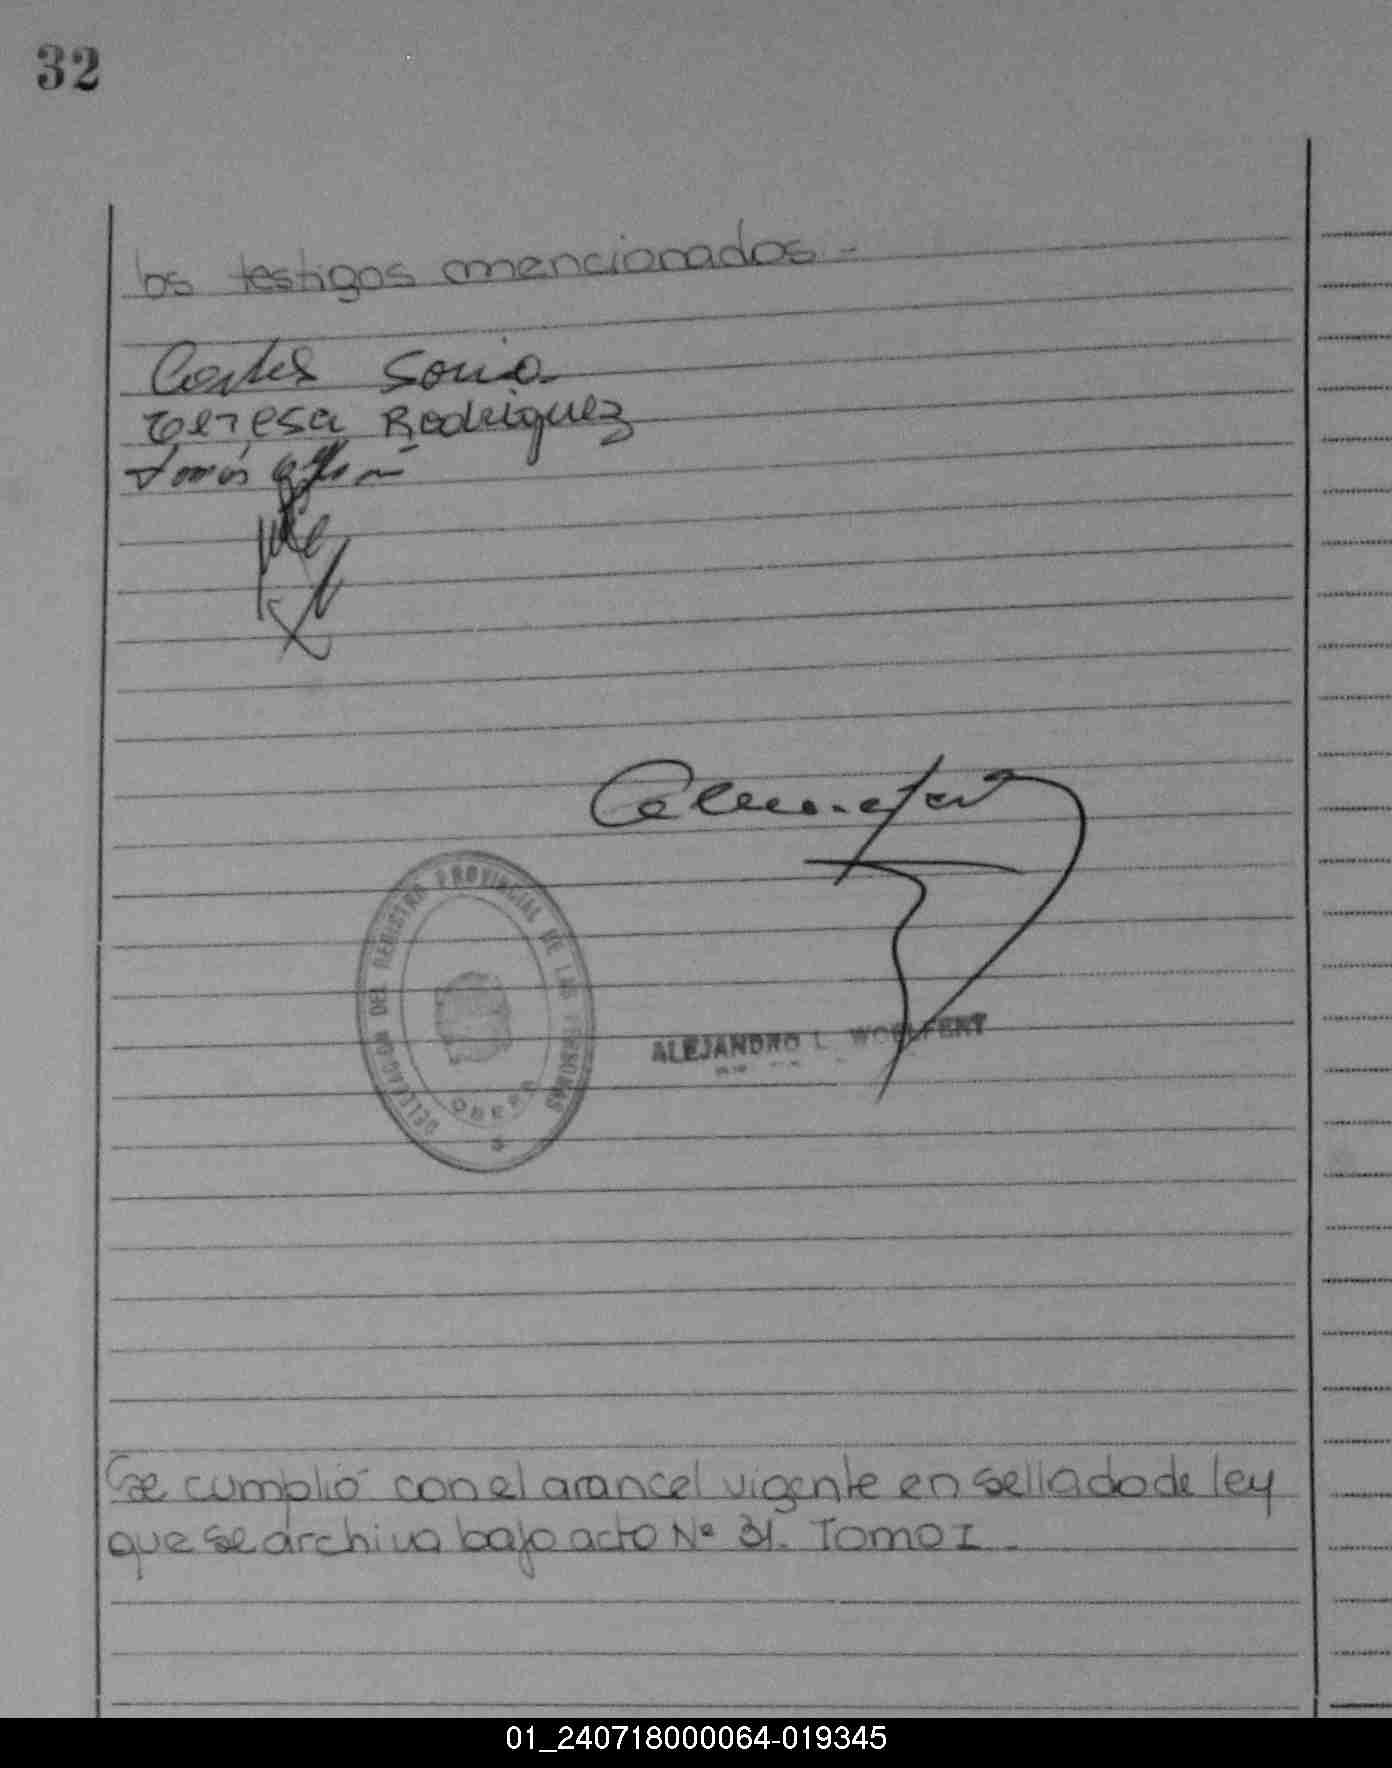 32
los testigos mencionados -
Carlos Soria
teresa Rodriguez
tomás
DELEGACION DEL REGISTRO PROVINCIAL DE LAS PERSONAS
OBERA
ALEJANDRO L. WOELFERT
Se cumplió con el arancel vigente en sellado de ley
que se archiva bajo acto Nº 31. Tomo I -
01_240718000064-019345